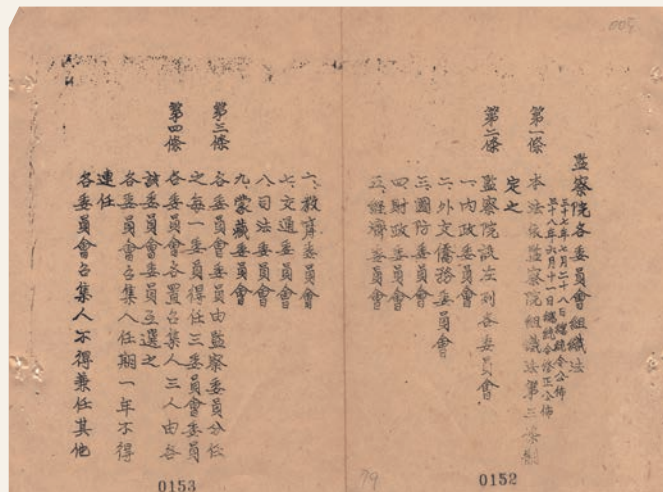 監察院各委員會組織法
三十七年七月二十八日總統令公佈
三十八年六月十一日總統令修正公佈
第一條 本法依監察院組織法第三條制
定之
第二條 監察院設左列各委員會
一、內政委員會
二、外交僑務委員會
三、國防委員會
四、財政委員會
五、經濟委員會
六、教育委員會
七、交通委員會
八、司法委員會
九、蒙藏委員會
第三條 各委員會委員由監察委員分任
之每一委員得任三委員會委員
第四條 各委員會各置召集人三人由各
該委員會委員互選之
各委員會召集人任期一年不得
連任
各委員會召集人不得兼任其他
005
79
0152
0153